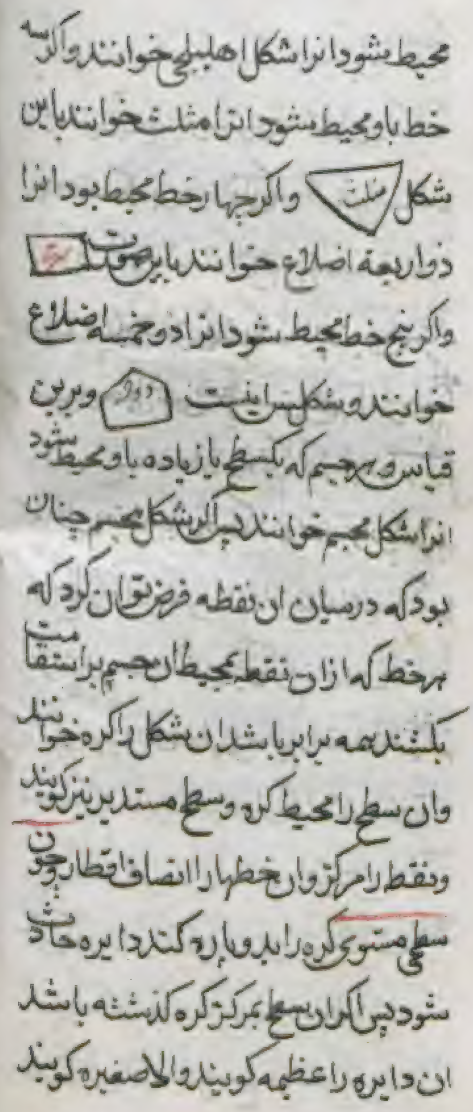 محیط شود انرا شکل اهلیلجی خوانند و اکر سه
خط باو محیط شود انرا مثلث خوانند باین
شکل مثلث و اکر چهار خط محیط بود انرا
ذو اربعة اضلاع خوانند باین صورت
و اکر پنج خط محیط شود انرا ذو خمسه اضلاع
خوانند و شکلش اینست و برین
قیاس و هر جسم که یکسطح یا زیاده باو محیط شود
انرا شکل مجسم خوانند پس اکر شکل مجسم چنان
بود که در میان ان نقطه فرض توان کرد که
هر خط که از ان نقطه بمحیط ان جسم بر استقامت
بکشند همه برابر باشد ان شکل را کره خوانند
وان سطح را محیط کره و سطح مستدیر نیز کویند
و نقطه را مرکز و ان خطها را انصاف اقطار و چون
سطحی مستوی کره را بدو پاره کند دایره حادث
شود پس اکر ان سطح بمرکز کره کذشته باشد
ان دایره را عظیمه کویند و الا صغیره کویند